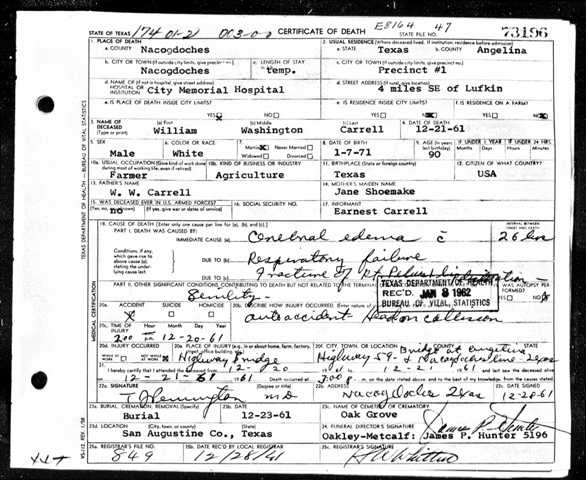 STATE OF TEXAS 174 01-2 CERTIFICATE OF DEATH E8164 47 STATE FILE NO. 73196
1. PLACE OF DEATH
a. COUNTY Nacogdoches
2. USUAL RESIDENCE (Where deceased lived. If institution: residence before admission)
a. STATE Texas b. COUNTY Angelina
b. CITY OR TOWN (If outside city limits, give precinct no.) Nacogdoches
c. LENGTH OF STAY temp.
c. CITY OR TOWN (If outside city limits, give precinct no.) Precinct #1
d. NAME OF (If not in hospital, give street address) HOSPITAL OR INSTITUTION City Memorial Hospital
d. STREET ADDRESS (If rural, give location) 4 miles SE of Lufkin
e. IS PLACE OF DEATH INSIDE CITY LIMITS? YES NO
e. IS RESIDENCE INSIDE CITY LIMITS? YES NO
f. IS RESIDENCE ON A FARM? YES NO
3. NAME OF DECEASED (Type or print) (a) First William (b) Middle Washington (c) Last Carrell
4. DATE OF DEATH 12-21-61
5. SEX Male
6. COLOR OR RACE White
7. Married Never Married Widowed Divorced
8. DATE OF BIRTH 1-7-71
9. AGE (In years last birthday) 90
IF UNDER 1 YEAR Months Days
IF UNDER 24 HRS Hours Min.
10a. USUAL OCCUPATION (Give kind of work done during most of working life, even if retired) Farmer
10b. KIND OF BUSINESS OR INDUSTRY Agriculture
11. BIRTHPLACE (State or foreign country) Texas
12. CITIZEN OF WHAT COUNTRY? USA
13. FATHER'S NAME W. W. Carrell
14. MOTHER'S MAIDEN NAME Jane Shoemake
15. WAS DECEASED EVER IN U.S. ARMED FORCES? (Yes, no, or unknown) (If yes, give war or dates of service) no
16. SOCIAL SECURITY NO.
17. INFORMANT Earnest Carrell
18. CAUSE OF DEATH [Enter only one cause per line for (a), (b), and (c).]
PART I. DEATH WAS CAUSED BY:
IMMEDIATE CAUSE (a) Cerebral edema c̄
INTERVAL BETWEEN ONSET AND DEATH 26 hrs
Conditions, if any, which gave rise to above cause (a), stating the underlying cause last.
DUE TO (b) Respiratory failure
DUE TO (c) Fracture of Rt.
PART II. OTHER SIGNIFICANT CONDITIONS CONTRIBUTING TO DEATH BUT NOT RELATED TO THE TERMINAL
Senility
WAS AUTOPSY PERFORMED? YES NO
TEXAS DEPARTMENT OF HEALTH
REC'D. JAN 8 1962
BUREAU OF VITAL STATISTICS
20a. ACCIDENT X SUICIDE HOMICIDE
20b. DESCRIBE HOW INJURY OCCURRED. (Enter nature of
auto accident Head on collision
20c. TIME OF INJURY Hour 2:00 Month, Day, Year 12-20-61
20d. INJURY OCCURRED WHILE AT WORK NOT WHILE AT WORK
20e. PLACE OF INJURY (e.g., in or about home, farm, factory, street, office building, etc.) Highway bridge
20f. CITY, TOWN, OR LOCATION COUNTY STATE Highway 59
21. I hereby certify that I attended the deceased from 12-20 61 to 12-21 1961 and last saw the deceased alive
on 12-21 1961 Death occurred at 3:00 P.m. on the date stated above; and to the best of my knowledge, from the causes stated.
22a. SIGNATURE (Degree or title) M.D.
22b. ADDRESS Nacogdoches Texas
22c. DATE SIGNED
23a. BURIAL, CREMATION, REMOVAL (Specify) Burial
23b. DATE 12-23-61
23c. NAME OF CEMETERY OR CREMATORY Oak Grove
23d. LOCATION (City, town, or county) (State) San Augustine Co., Texas
24. FUNERAL DIRECTOR'S SIGNATURE
Oakley-Metcalf: James P. Hunter 5196
25a. REGISTRAR'S FILE NO. 849
25b. DATE REC'D BY LOCAL REGISTRAR 12/28/61
25c. REGISTRAR'S SIGNATURE
TEXAS DEPARTMENT OF HEALTH—BUREAU OF VITAL STATISTICS
MEDICAL CERTIFICATION